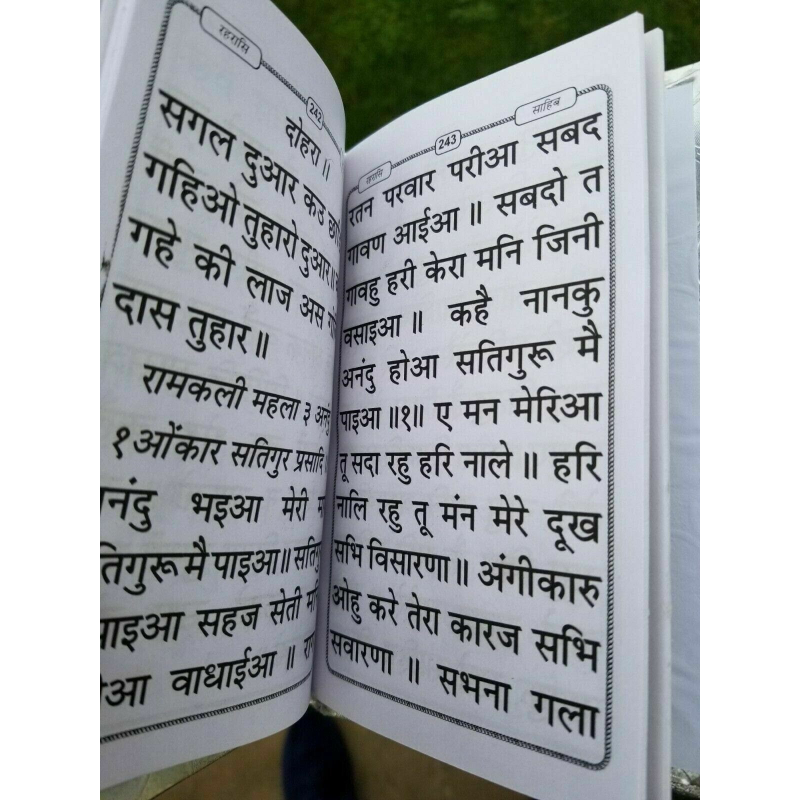 रहरासि
242
दोहरा॥
सगल दुआर कउ
गहिओ तुहारो दुआर॥
गहे की लाज अस
दास तुहार॥
रामकली महला ३
१ओंकार सतिगुर प्रसादि
भइआ मेरी
मै पाइआ॥
सहज सेती
वाधाईआ ॥
साहिब
243
रहरासि
रतन परवार परीआ सबद
गावण आईआ ॥ सबदो त
गावहु हरी केरा मनि जिनी
वसाइआ ॥ कहै नानकु
अनंदु होआ सतिगुरू मै
पाइआ ॥१॥ ए मन मेरिआ
तू सदा रहु हरि नाले ॥ हरि
नालि रहु तू मंन मेरे दूख
सभि विसारणा॥ अंगीकारु
ओहु करे तेरा कारज सभि
सवारणा ॥ सभना गला